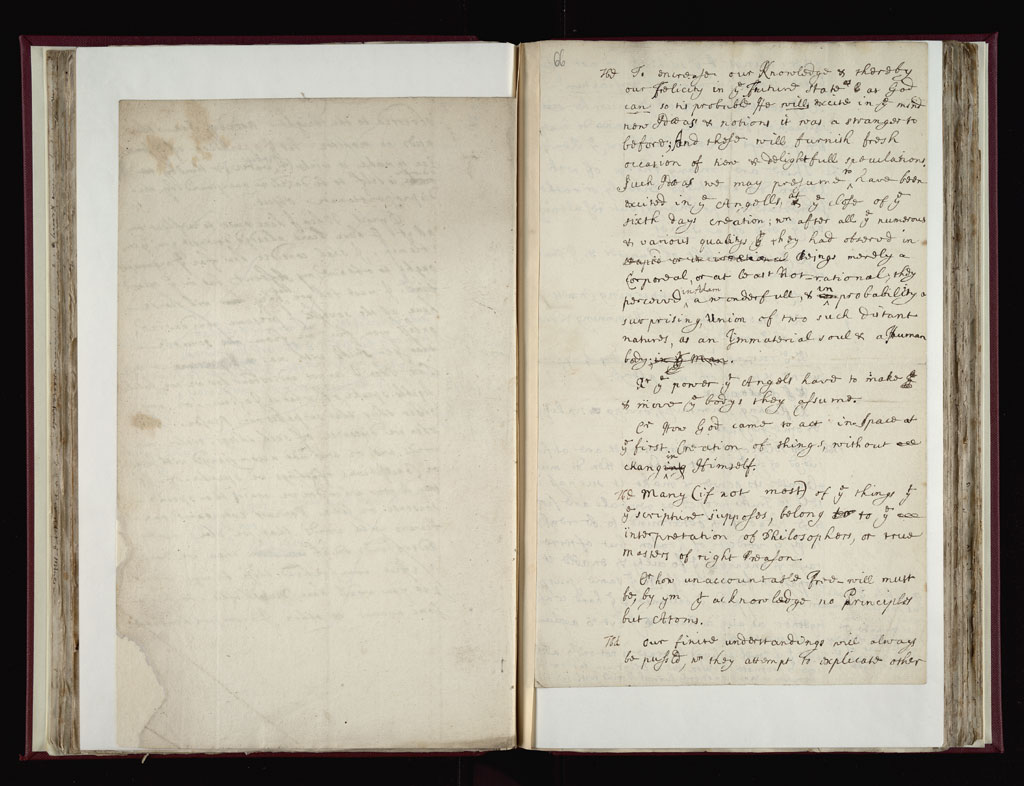 66
To encrease our Knowledge & thereby
our Felicity in ye Future State as God
can so tis probable He wills excite in ye mind
new Ideas & notions it was a stranger to
before; And these will furnish fresh
occasion of new & delightfull speculations.
Such Ideas we may presume to have been
excited in ye Angells, at ye close of ye
sixth days creation; wn after all ye numerous
& various qualitys yt they had observed in
Beings merely a
Corporeal, or at least Not-rational; they
perceived in Adam a wonderfull, & in probability a
surprising, Union of two such distant
natures, as an Immaterial soul & a Human
body; in ye Man.
Or ye power ye Angels have to make
& move ye bodys they assume.
Or How God came to act in space at
ye first Creation of things, without
changing in Himself.
Many (if not most) of ye things yt
ye scripture supposes, belong to to ye
interpretation of Philosophers, or true
masters of right Reason.
Or how unaccountable Free-will must
be, by ym yt acknowledge no Principles
but Atoms.
our finite understandings will always
be pusl'd, wn they attempt to explicate other